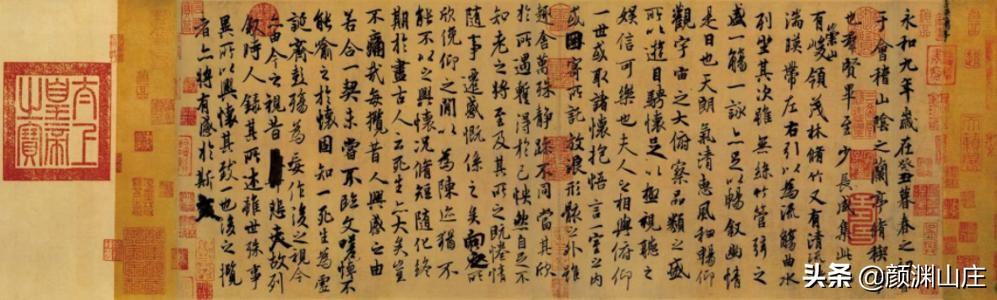 永和九年歲在癸丑暮春之初
于會稽山陰之蘭亭脩禊
也群賢畢至少長咸集此
有崇山峻領茂林脩竹又有清流
湍暎帶左右引以為流觴曲水
列坐其次雖無絲竹管弦之
盛一觴一詠亦足以暢敘幽情
是日也天朗氣清惠風和暢仰
觀宇宙之大俯察品類之盛
所以遊目騁懷足以極視聽之
娛信可樂也夫人之相與俯仰
一世或取諸懷抱悟言一室之內
或因寄所託放浪形骸之外雖
趣舍萬殊靜躁不同當其欣
於所遇暫得於己怏然自足不
知老之將至及其所之既惓情
隨事遷感慨係之矣向之所
欣俛仰之閒以為陳迹猶不
能不以之興懷況脩短隨化終
期於盡古人云死生亦大矣豈
不痛哉每攬昔人興感之由
若合一契未嘗不臨文嗟悼不
能喻之於懷固知一死生為虛
誕齊彭殤為妄作後之視今
亦由今之視昔悲夫故列
敘時人錄其所述雖世殊事
異所以興懷其致一也後之攬
者亦將有感於斯文
太上
皇帝
之寶
头条 @颜渊山庄